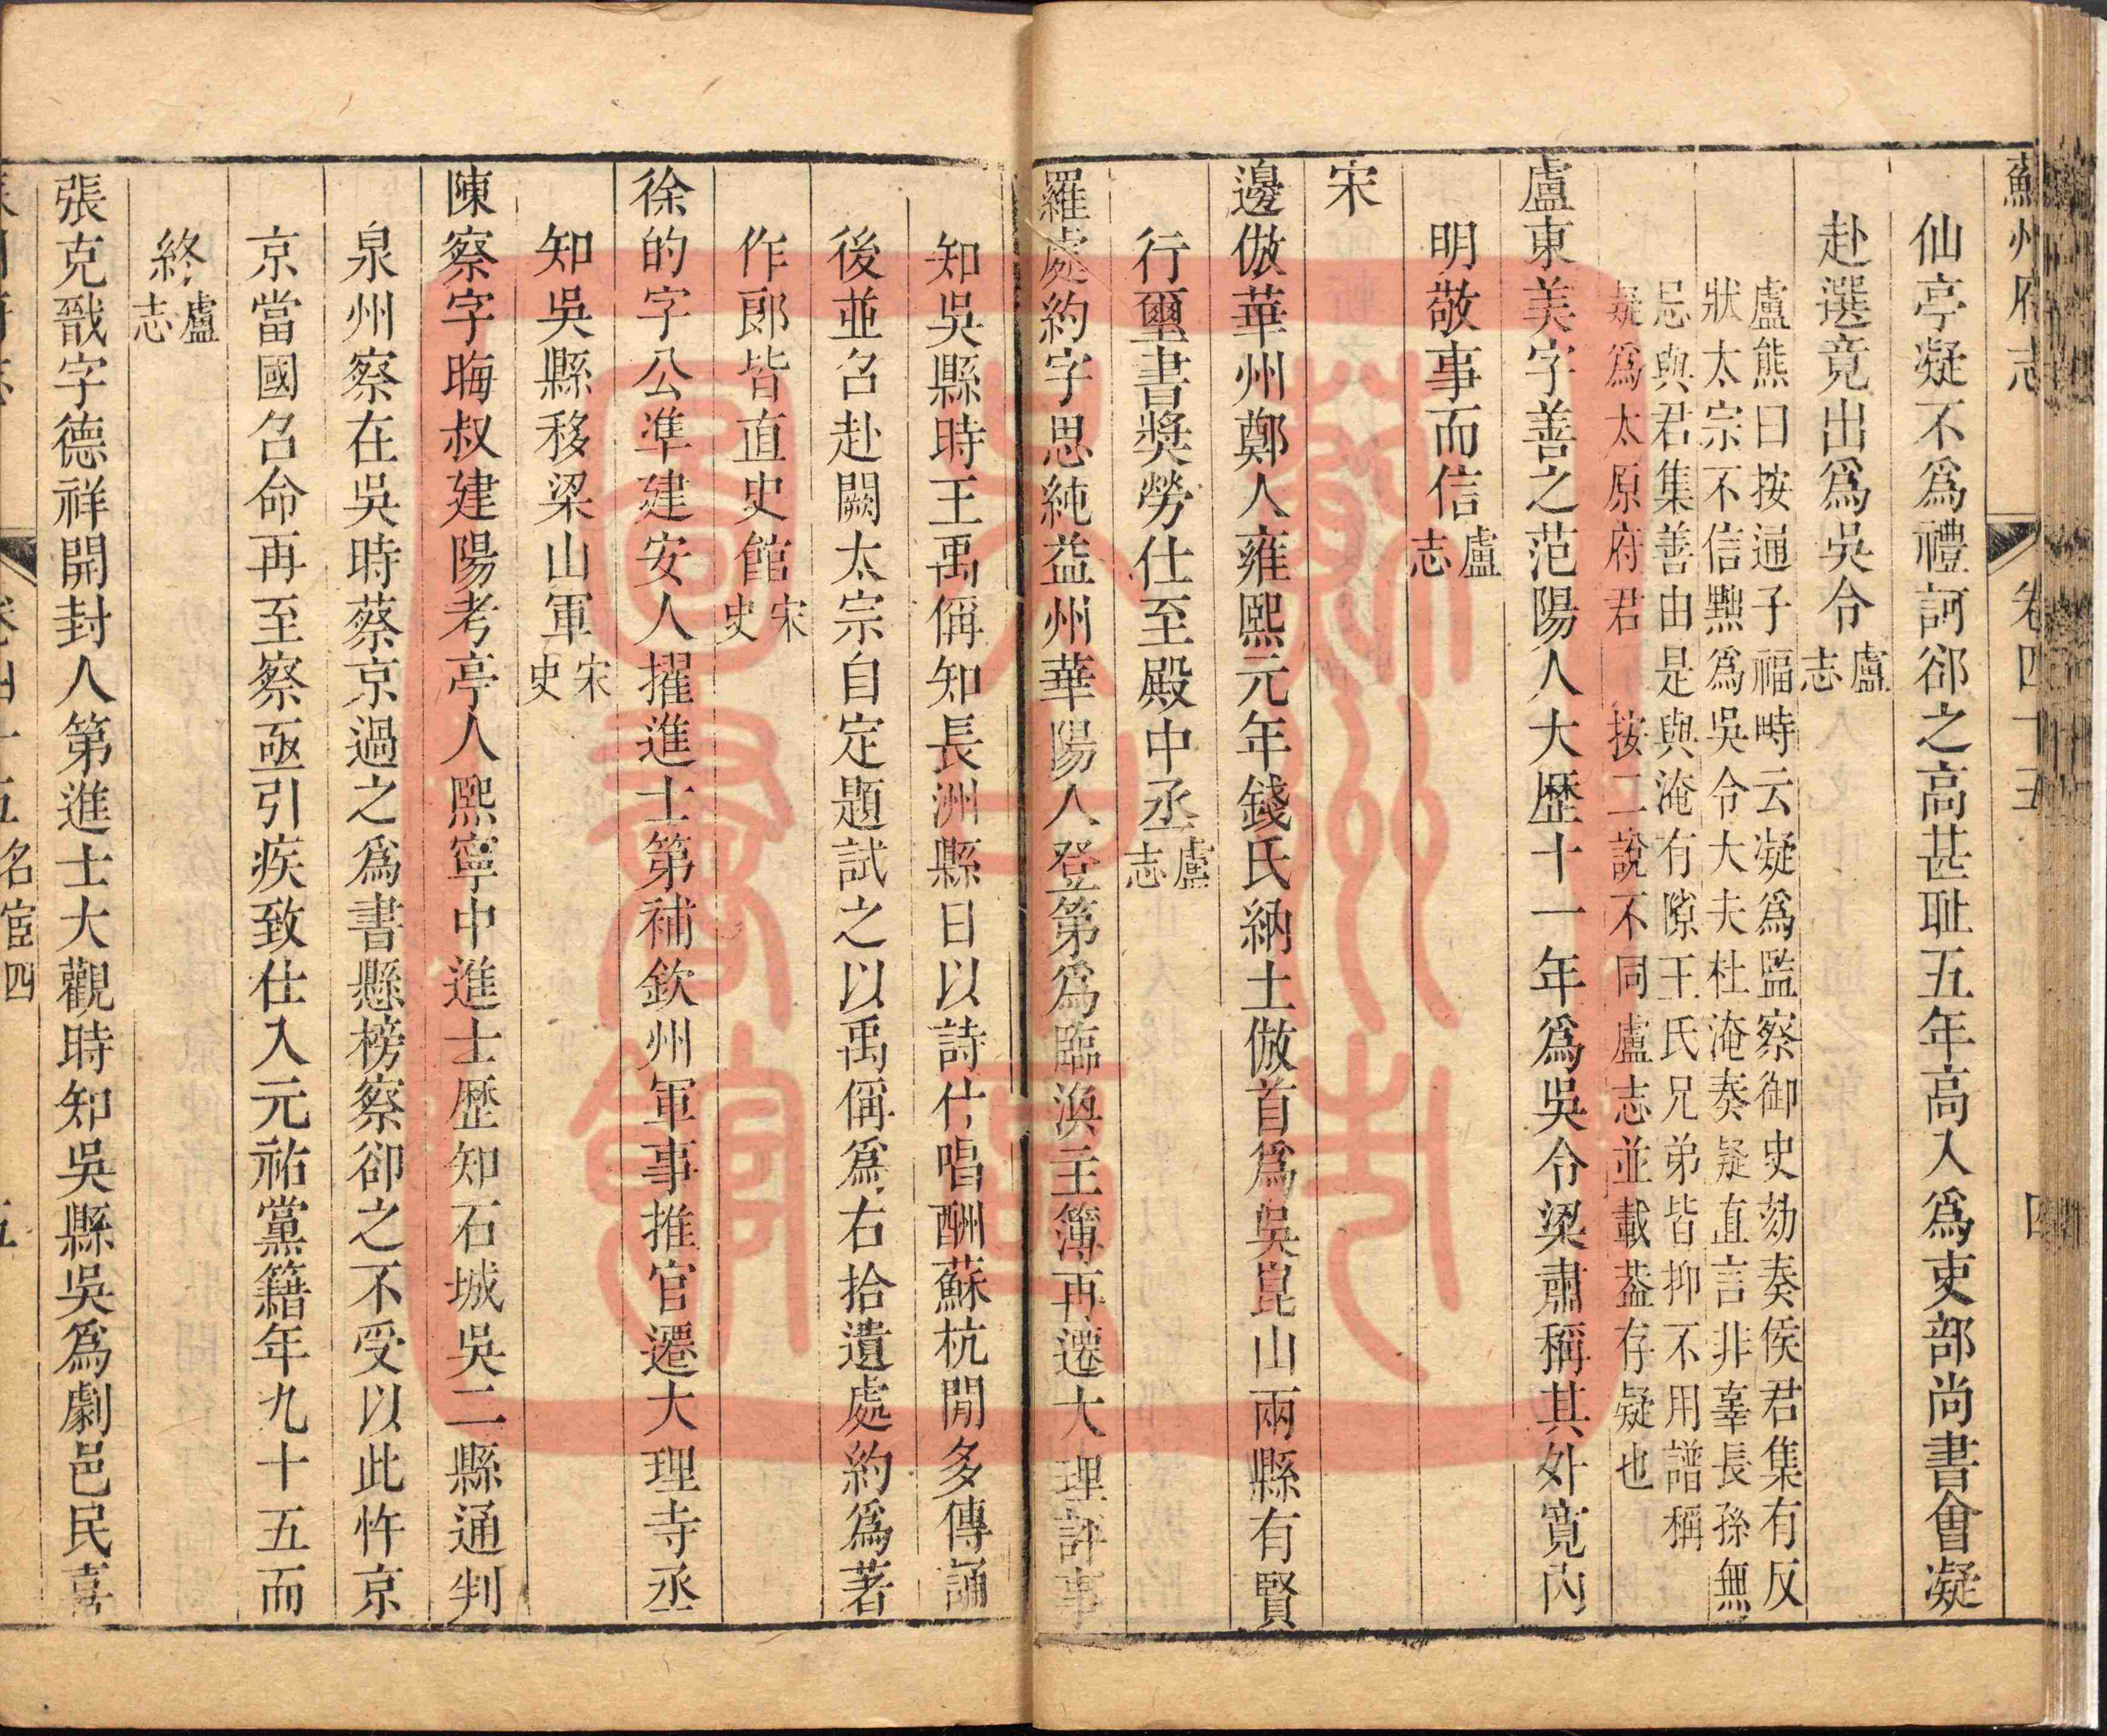 蘇州府志 卷四十五 四
仙亭凝不爲禮訶郤之高甚耻五年高入爲吏部尚書會凝
赴選竟出爲吳令盧志
盧熊曰按通子福畤云凝爲監察御史劾奏侯君集有反
狀太宗不信黜爲吳令大夫杜淹奏疑直言非辜長孫無
忌與君集善由是與淹有隙王氏兄弟皆抑不用譜稱
疑爲太原府君 按二說不同盧志並載葢存疑也
盧東美字善之范陽人大歴十一年爲吳令梁肅稱其外寛內
明敬事而信盧志
宋
邊倣華州鄭人雍熙元年錢氏納土倣首爲吳崑山兩縣有賢
行璽書獎勞仕至殿中丞盧志
羅處約字思純益州華陽人登第爲臨渙主簿再遷大理評事
知吳縣時王禹偁知長洲縣日以詩什唱酬蘇杭閒多傳誦
後並召赴闕太宗自定題試之以禹偁爲右拾遺處約爲著
作郎皆直史館宋史
徐的字公準建安人擢進士第補欽州軍事推官遷大理寺丞
知吳縣移梁山軍宋史
陳察字晦叔建陽考亭人熙寧中進士歷知石城吳二縣通判
泉州察在吳時蔡京過之爲書懸榜察卻之不受以此忤京
京當國召命再至察亟引疾致仕入元祐黨籍年九十五而
終盧志
張克戩字德祥開封人第進士大觀時知吳縣吳爲劇邑民喜
卷四十五 名宦四 五
蘇州市 圖書館藏